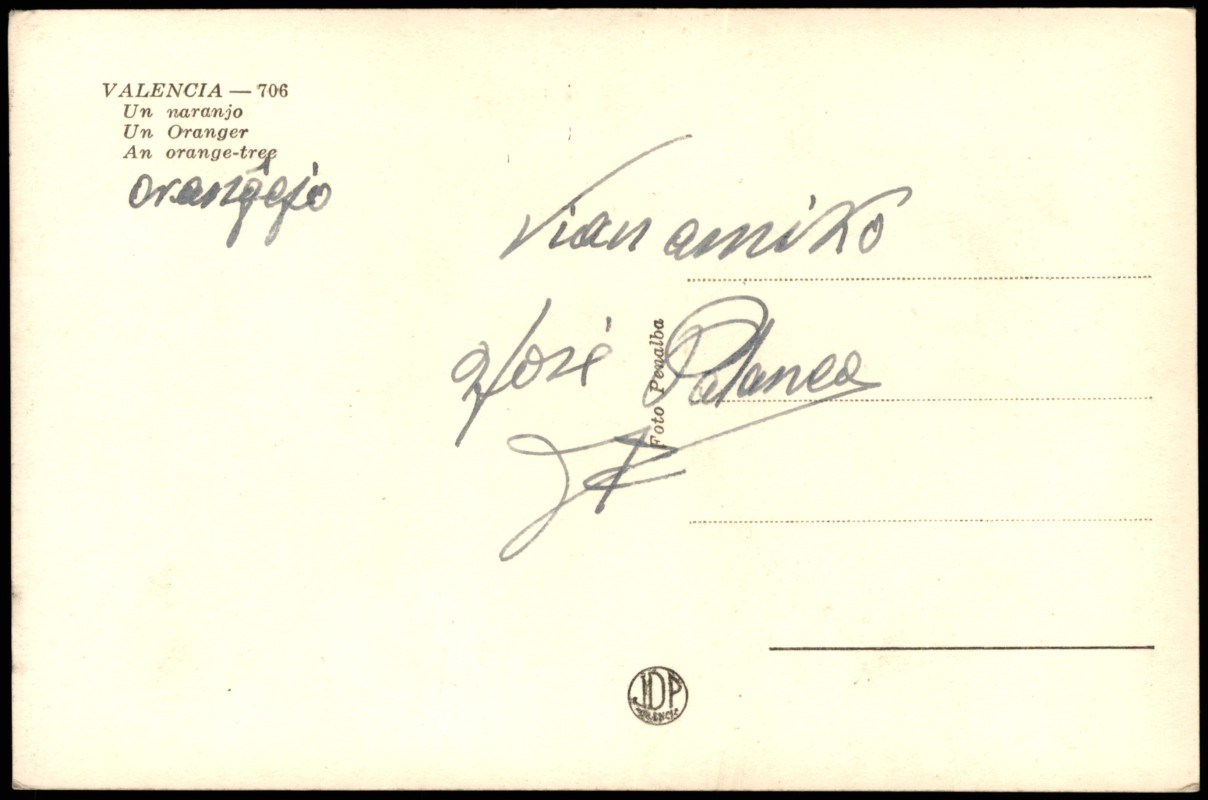 VALENCIA — 706
Un naranjo
Un Oranger
An orange-tree
oranĝejo
Vian amiko
José
Foto Penalba
JDP
VALENCIA